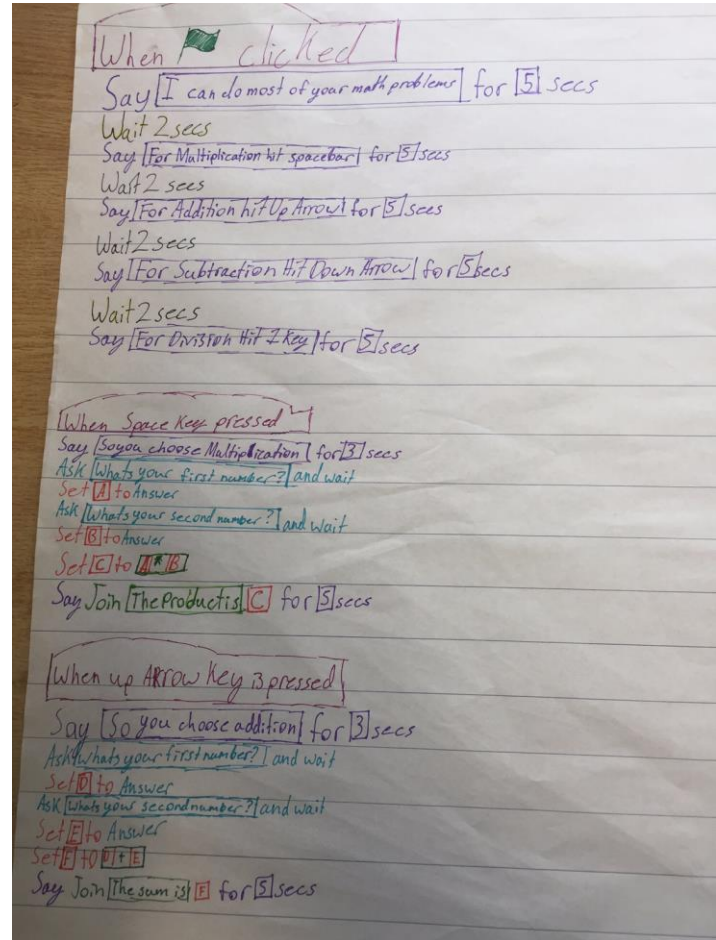 When clicked
Say [I can do most of your math problems] for [5] secs
Wait 2 secs
Say [For Multiplication hit spacebar] for [5] secs
Wait 2 secs
Say [For Addition hit Up Arrow] for [5] secs
Wait 2 secs
Say [For Subtraction Hit Down Arrow] for [5] secs
Wait 2 secs
Say [For Division Hit Key] for [5] secs
When Space Key pressed
Say [So you choose Multiplication] for [3] secs
Ask [Whats your first number?] and wait
Set [A] to Answer
Ask [Whats your second number?] and wait
Set [B] to Answer
Set [C] to [A * B]
Say Join [The Product is] [C] for [5] secs
When up Arrow Key is pressed
Say [So you choose addition] for [3] secs
Ask [whats your first number?] and wait
Set [D] to Answer
Ask [whats your second number?] and wait
Set [E] to Answer
Set [F] to [D + E]
Say Join [The sum is] [F] for [5] secs